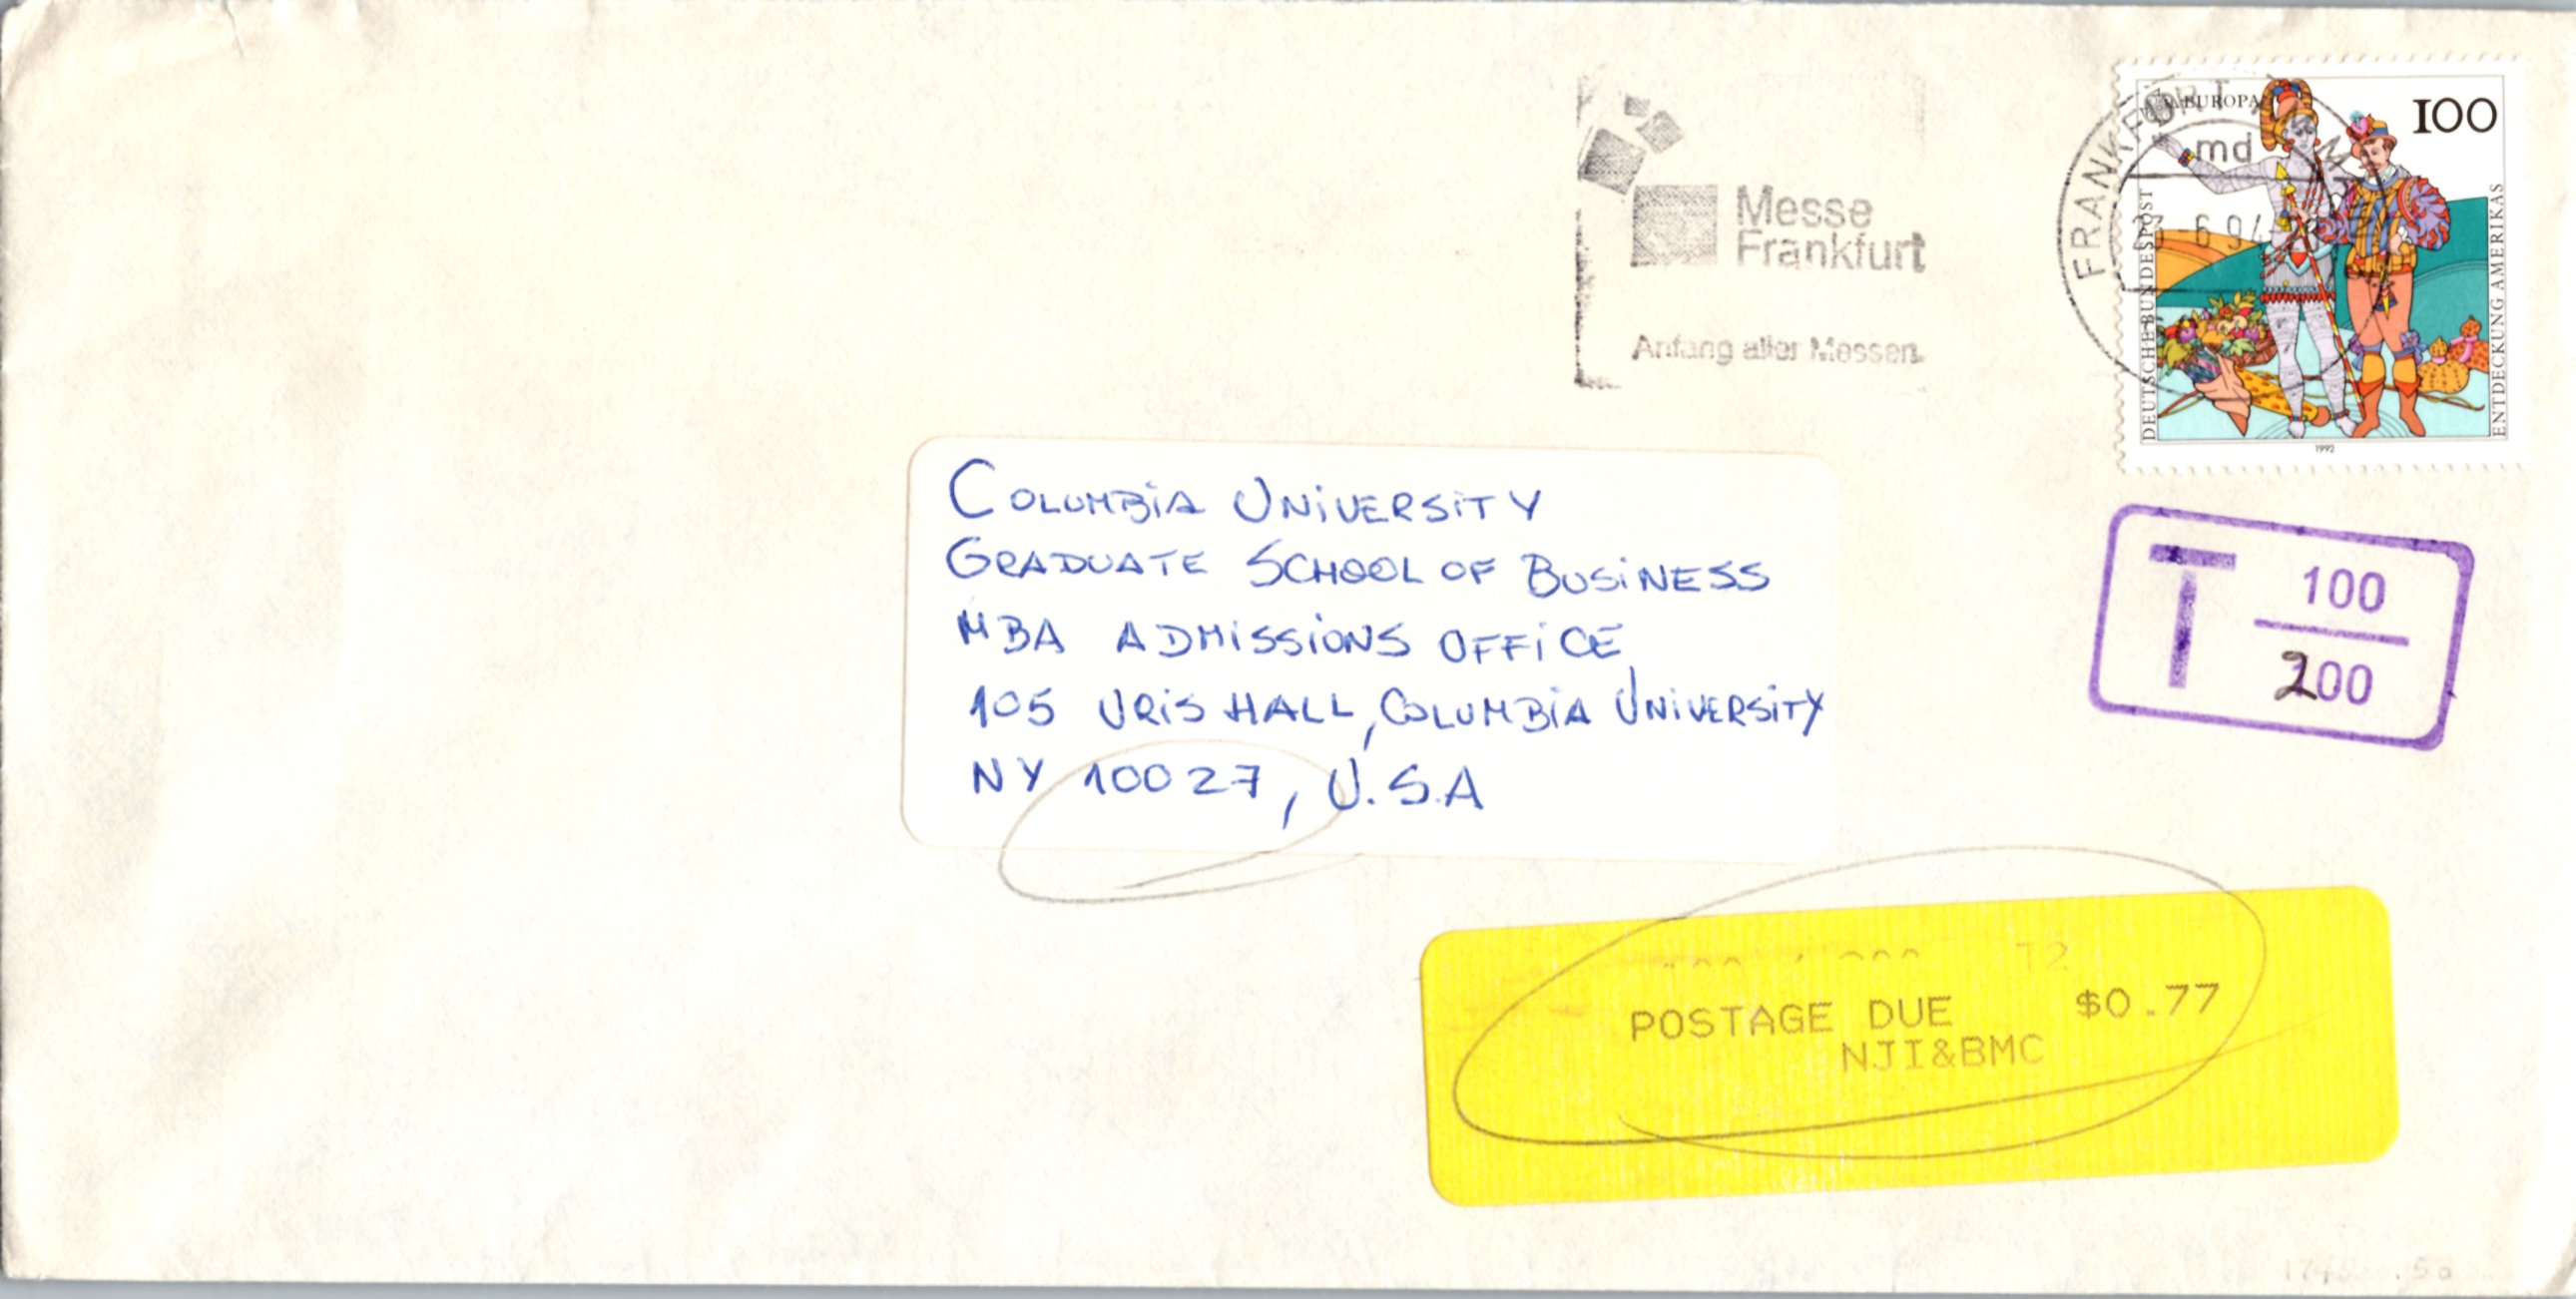 Messe
Frankfurt
Anfang aller Messen
FRANKFURT
md
6 94
EUROPA
100
DEUTSCHE BUNDESPOST
ENTDECKUNG AMERIKAS
1992
COLUMBIA UNIVERSITY
GRADUATE SCHOOL OF BUSINESS
MBA ADMISSIONS OFFICE
105 URIS HALL, COLUMBIA UNIVERSITY
NY 10027, U.S.A
T 100
200
T2
POSTAGE DUE $0.77
NJI&BMC